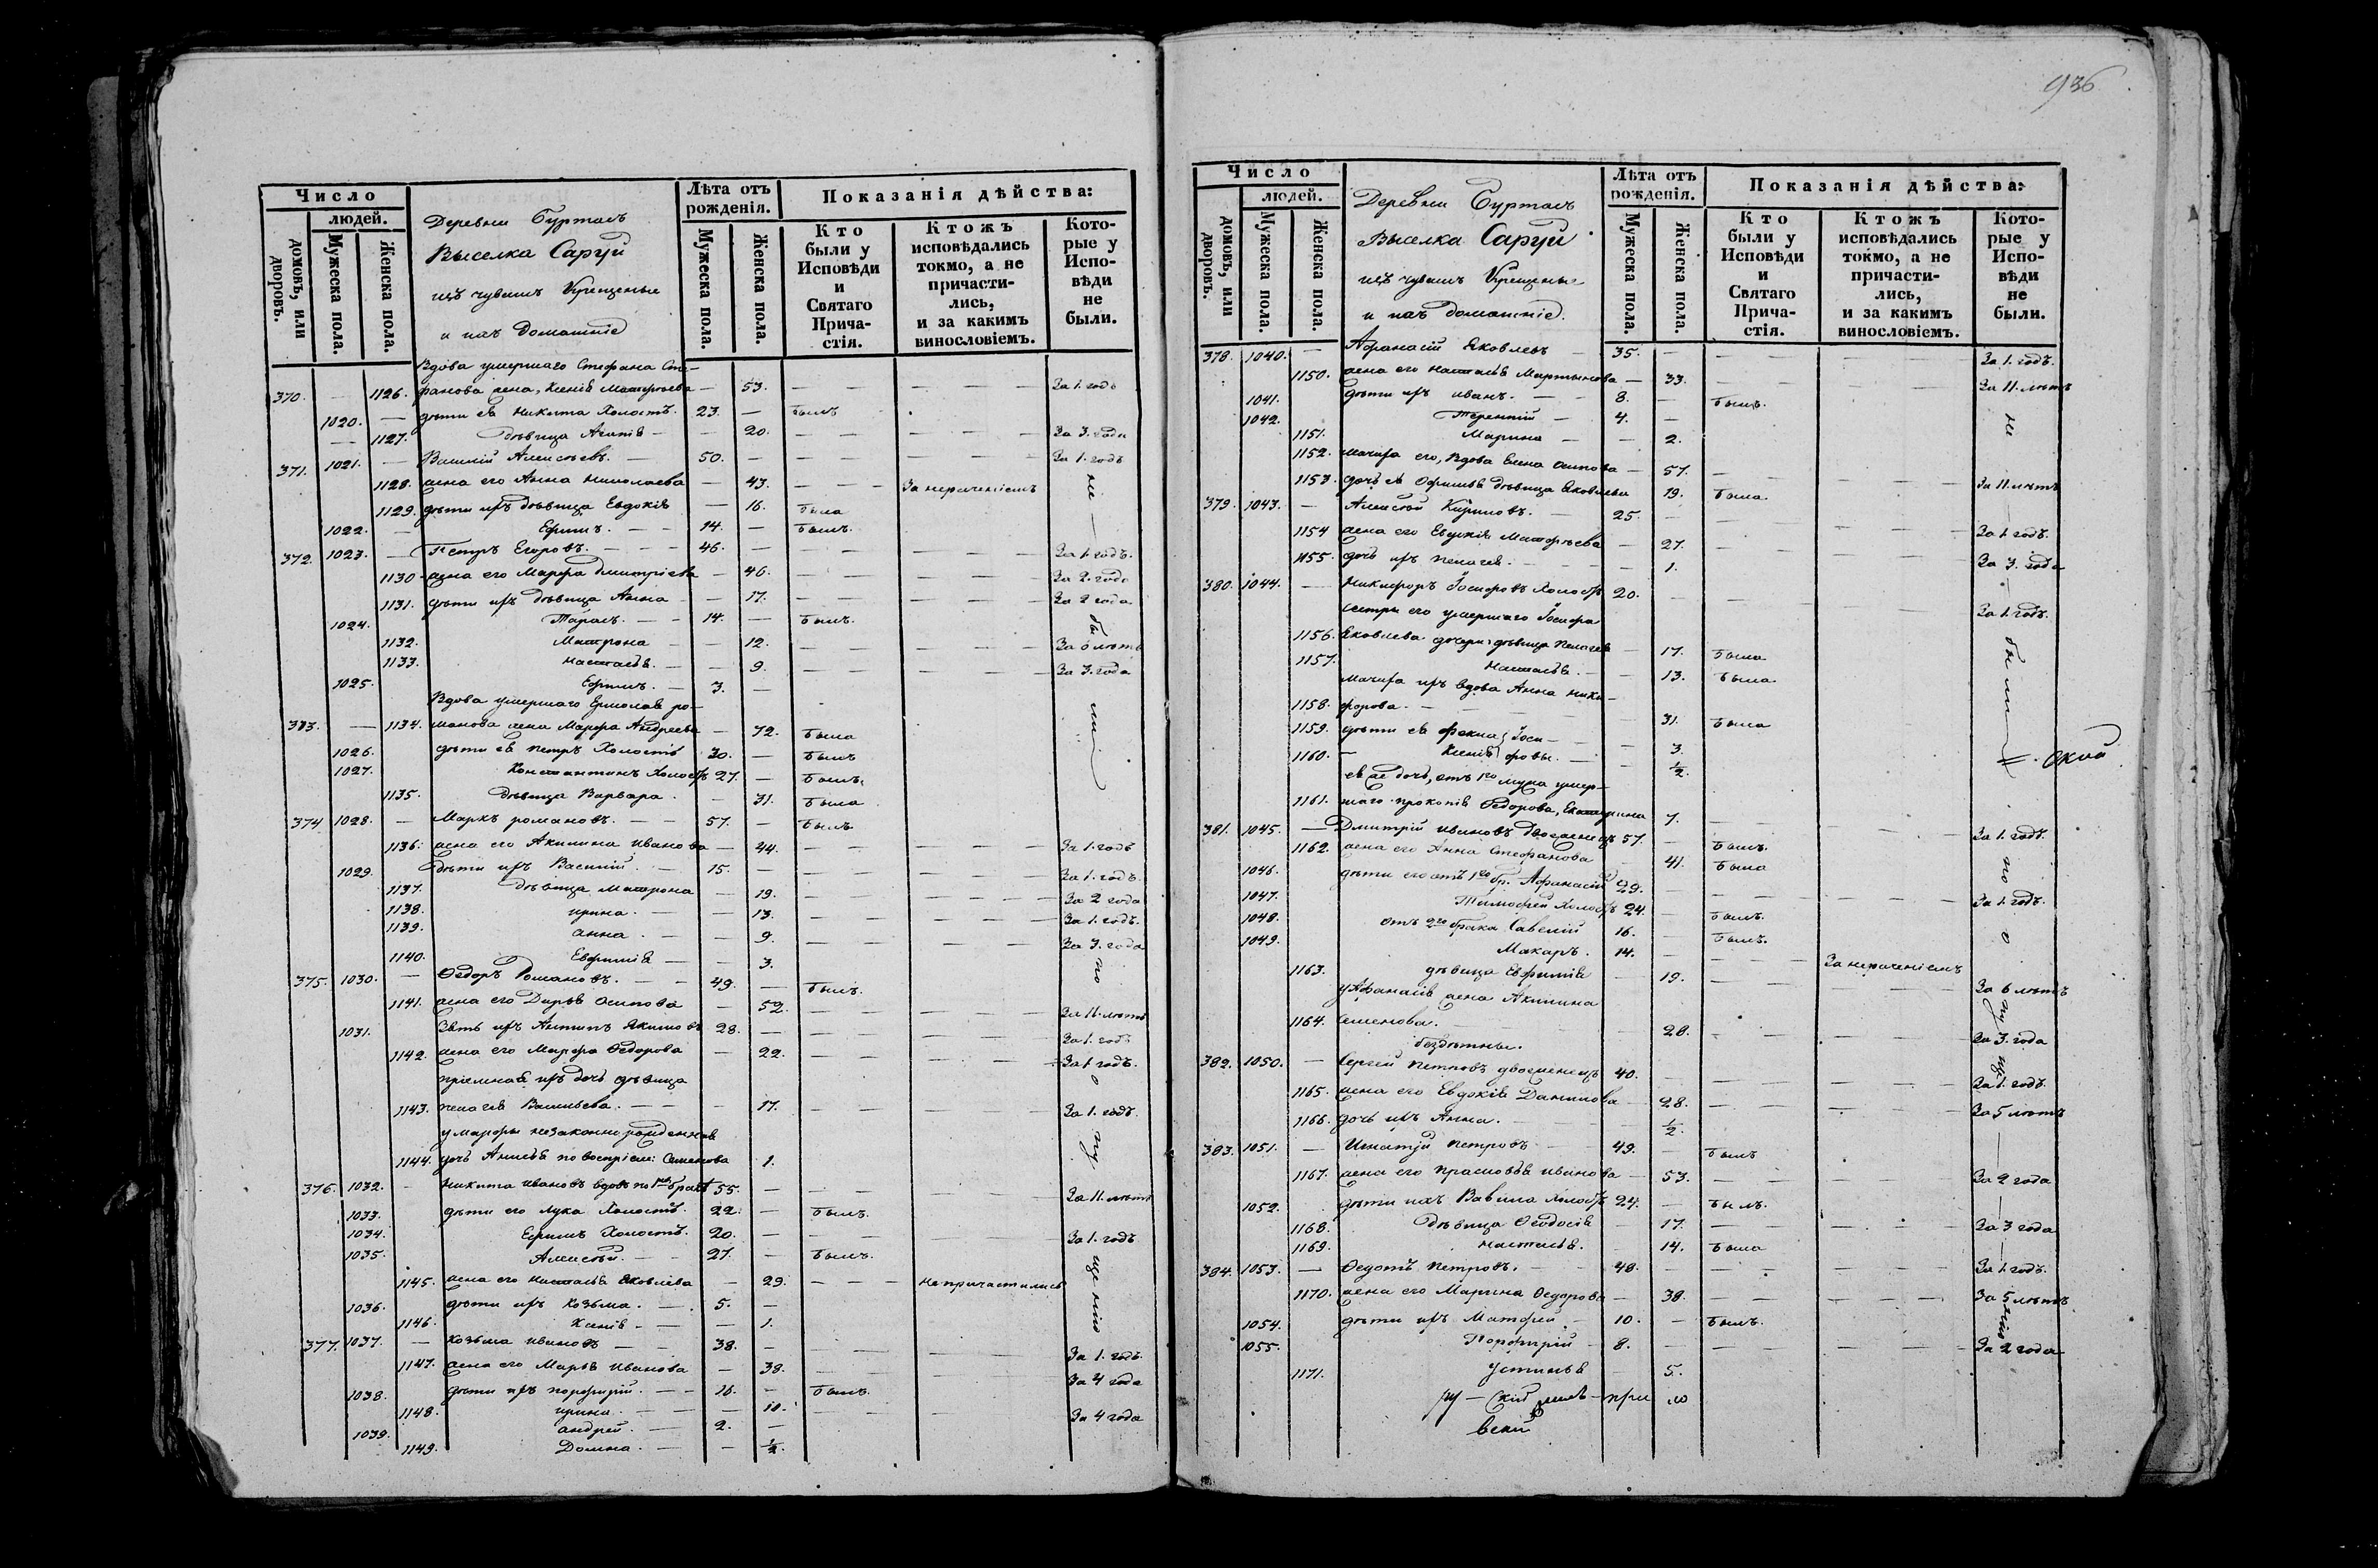 936
Число
людей.
домовъ, или дворовъ.
Мужеска пола.
Женска пола.
Деревни Буртасъ
Выселка Саруй
изъ чувашъ Крещеные
и ихъ домашніе
Лѣта отъ рожденія.
Мужеска пола.
Женска пола.
Показанія дѣйства:
Кто были у Исповѣди и Святаго Прича-стія.
Ктожъ исповѣдались токмо, а не причасти-лись, и за какимъ винословіемъ.
Кото-рые у Испо-вѣди не были.
Вдова умершаго Стефана Сте-
370. — 1126. фанова жена, Ксенія Матфѣева — 53. За 1. годъ
1020. — дѣти ея Никита Холостъ. 23. — былъ
— 1127. дѣвица Агапія — — 20. За 3. года
371. 1021. — Василій Алексѣевъ. — 50. — За 1. годъ
1128. жена его Анна Николаева — 43. За нераченіемъ
1129. дѣти ихъ дѣвица Евдокія — 16. была
1022. — Ефимъ. — 14. — былъ.
372. 1023. — Петръ Егоровъ. — 46. — За 1. годъ.
1130. жена его Марфа Дмитріева — 46. За 2. года
1131. дѣти ихъ дѣвица Анна — 17. За 2 года
1024. Тарасъ. — 14. — былъ.
1132. Матрона — — 12. За 6 лѣтъ
1133. Настасья. — — 9. За 3. года
1025. Ефимъ. — 3. —
Вдова умершаго Ермолая Ро-
373. — 1134. манова жена Марфа Андреева — 72. была
1026. дѣти ея Петръ Холостъ 30. — былъ
1027. Константинъ Холостъ 27. — былъ.
1135. дѣвица Варвара. — 31. была
374 1028. — Маркъ Романовъ. — 57. — былъ
1136. жена его Акилина Иванова — 44. За 1. годъ
1029. дѣти ихъ Василій. — 15. — За 1. годъ.
1137. дѣвица Матрона — 19. За 2 года
1138. Ирина. — — 13. За 1. годъ.
1139. Анна. — — 9. За 3. года
1140. Евфимія — — 3.
375. 1030. — Ѳедоръ Романовъ. — 49. — былъ.
1141. жена его Дарья Осипова — 52. За 11. лѣтъ
1031. Зять ихъ Антипъ Якимовъ 28. — За 1. годъ
1142. жена его Марфа Ѳедорова — 22. За 1 годъ.
пріемная ихъ дочь дѣвица
1143. Пелагея Васильева. — 17. За 1. годъ.
у Марфы незаконно рожденная
1144. дочь Анисья по воспріем: Семенова 1.
376. 1032. — Никита Ивановъ вдовъ по 1мъ бракѣ 55. — За 11. лѣтъ
1033. дѣти его Лука Холостъ. 22. — былъ.
1034. Ефимъ Холостъ. 20. — За 1. годъ
1035. Алексѣй. — 27. — былъ.
1145. жена его Настасья Яковлева — 29. Не причастились
1036. дѣти ихъ Козьма. — 5. —
1146. Ксенія — — 1.
377. 1037. — Козьма Ивановъ — 38. — За 1. годъ
1147. жена его Марья Иванова — 38. За 4 года
1038. дѣти ихъ Порфирій. — 16. — былъ.
1148. Ирина. — — 10. За 4 года
1039. Андрей. — 2. —
1149. Домна. — — ½.
не были по опущенію
Число
людей.
домовъ, или дворовъ.
Мужеска пола.
Женска пола.
Деревни Буртасъ
Выселка Саруй
изъ чувашъ Крещеные
и ихъ домашніе.
Лѣта отъ рожденія.
Мужеска пола.
Женска пола.
Показанія дѣйства:
Кто были у Исповѣди и Святаго Прича-стія.
Ктожъ исповѣдались токмо, а не причасти-лись, и за какимъ винословіемъ.
Кото-рые у Испо-вѣди не были.
378. 1040. — Афанасій Яковлевъ — 35. — За 1. годъ.
1150. жена его Настасья Мартынова — 33. За 11. лѣтъ
1041. дѣти ихъ Иванъ. — 8. — былъ.
1042. Терентій — 4. —
1151. Марина — — 2.
1152. мачиха его, вдова Елена Осипова — 57. За 11. лѣтъ
1153. дочь ея Офимья дѣвица Яковлева 19. была.
379. 1043. — Алексѣй Кириловъ. — 25. За 1 годъ.
1154 жена его Евдокія Матфѣева — 27. За 3. года
1155. дочь ихъ Пелагея. — 1.
380. 1044. — Никифоръ Іосифовъ Холостъ 20. За 1. годъ.
сестры его умершаго Іосифа
1156. Яковлева дочери: дѣвица Пелагея — 17. была
1157. Настасья. — — 13. была.
мачиха ихъ вдова Анна Ники-
1158. форова. — 31. была
1159. дѣти ея Фекла Іоси- — 3.
1160. Ксенія фовы. — ½.
ея же дочь, отъ 1го мужа умер-
1161. шаго Прокопія Ѳедорова, Екатерина 7.
381. 1045. — Дмитрій Ивановъ двоеженецъ 57. — былъ. За 1. годъ.
1162. жена его Анна Стефанова — 41. была
1046. дѣти его отъ 1го бр. Афанасій 29. — За 1. годъ.
1047. Тимофей Холостъ 24. — былъ.
1048. отъ 2го брака Савелій 16. — былъ.
1049. Макаръ. 14. — За нераченіемъ
1163. дѣвица Евфимія — 19. За 6 лѣтъ
у Афанасія жена Акилина
1164. Семенова. — 28. За 3. года
бездѣтны.
382. 1050. — Сергей Петровъ двоеженецъ 40. — За 1. годъ.
1165. жена его Евдокія Данилова — 28. За 5 лѣтъ
1166. дочь ихъ Анна. — ½.
383. 1051. — Игнатій Петровъ — 49. — былъ
1167. жена его Прасковья Иванова — 53. За 2 года
1052. дѣти ихъ Вавила Холостъ 24. — былъ.
1168. дѣвица Ѳеодосія — 17. За 3 года
1169. Настасья. — 14. была
384. 1053. — Ѳедотъ Петровъ. — 48. — За 1. годъ.
1170. жена его Марина Ѳедорова — 38. За 5 лѣтъ.
1054. дѣти ихъ Матфей — 10. — былъ.
1055. Порфирій — 8. — За 2 года
1171. Устинья — 5.
не были по опущенію